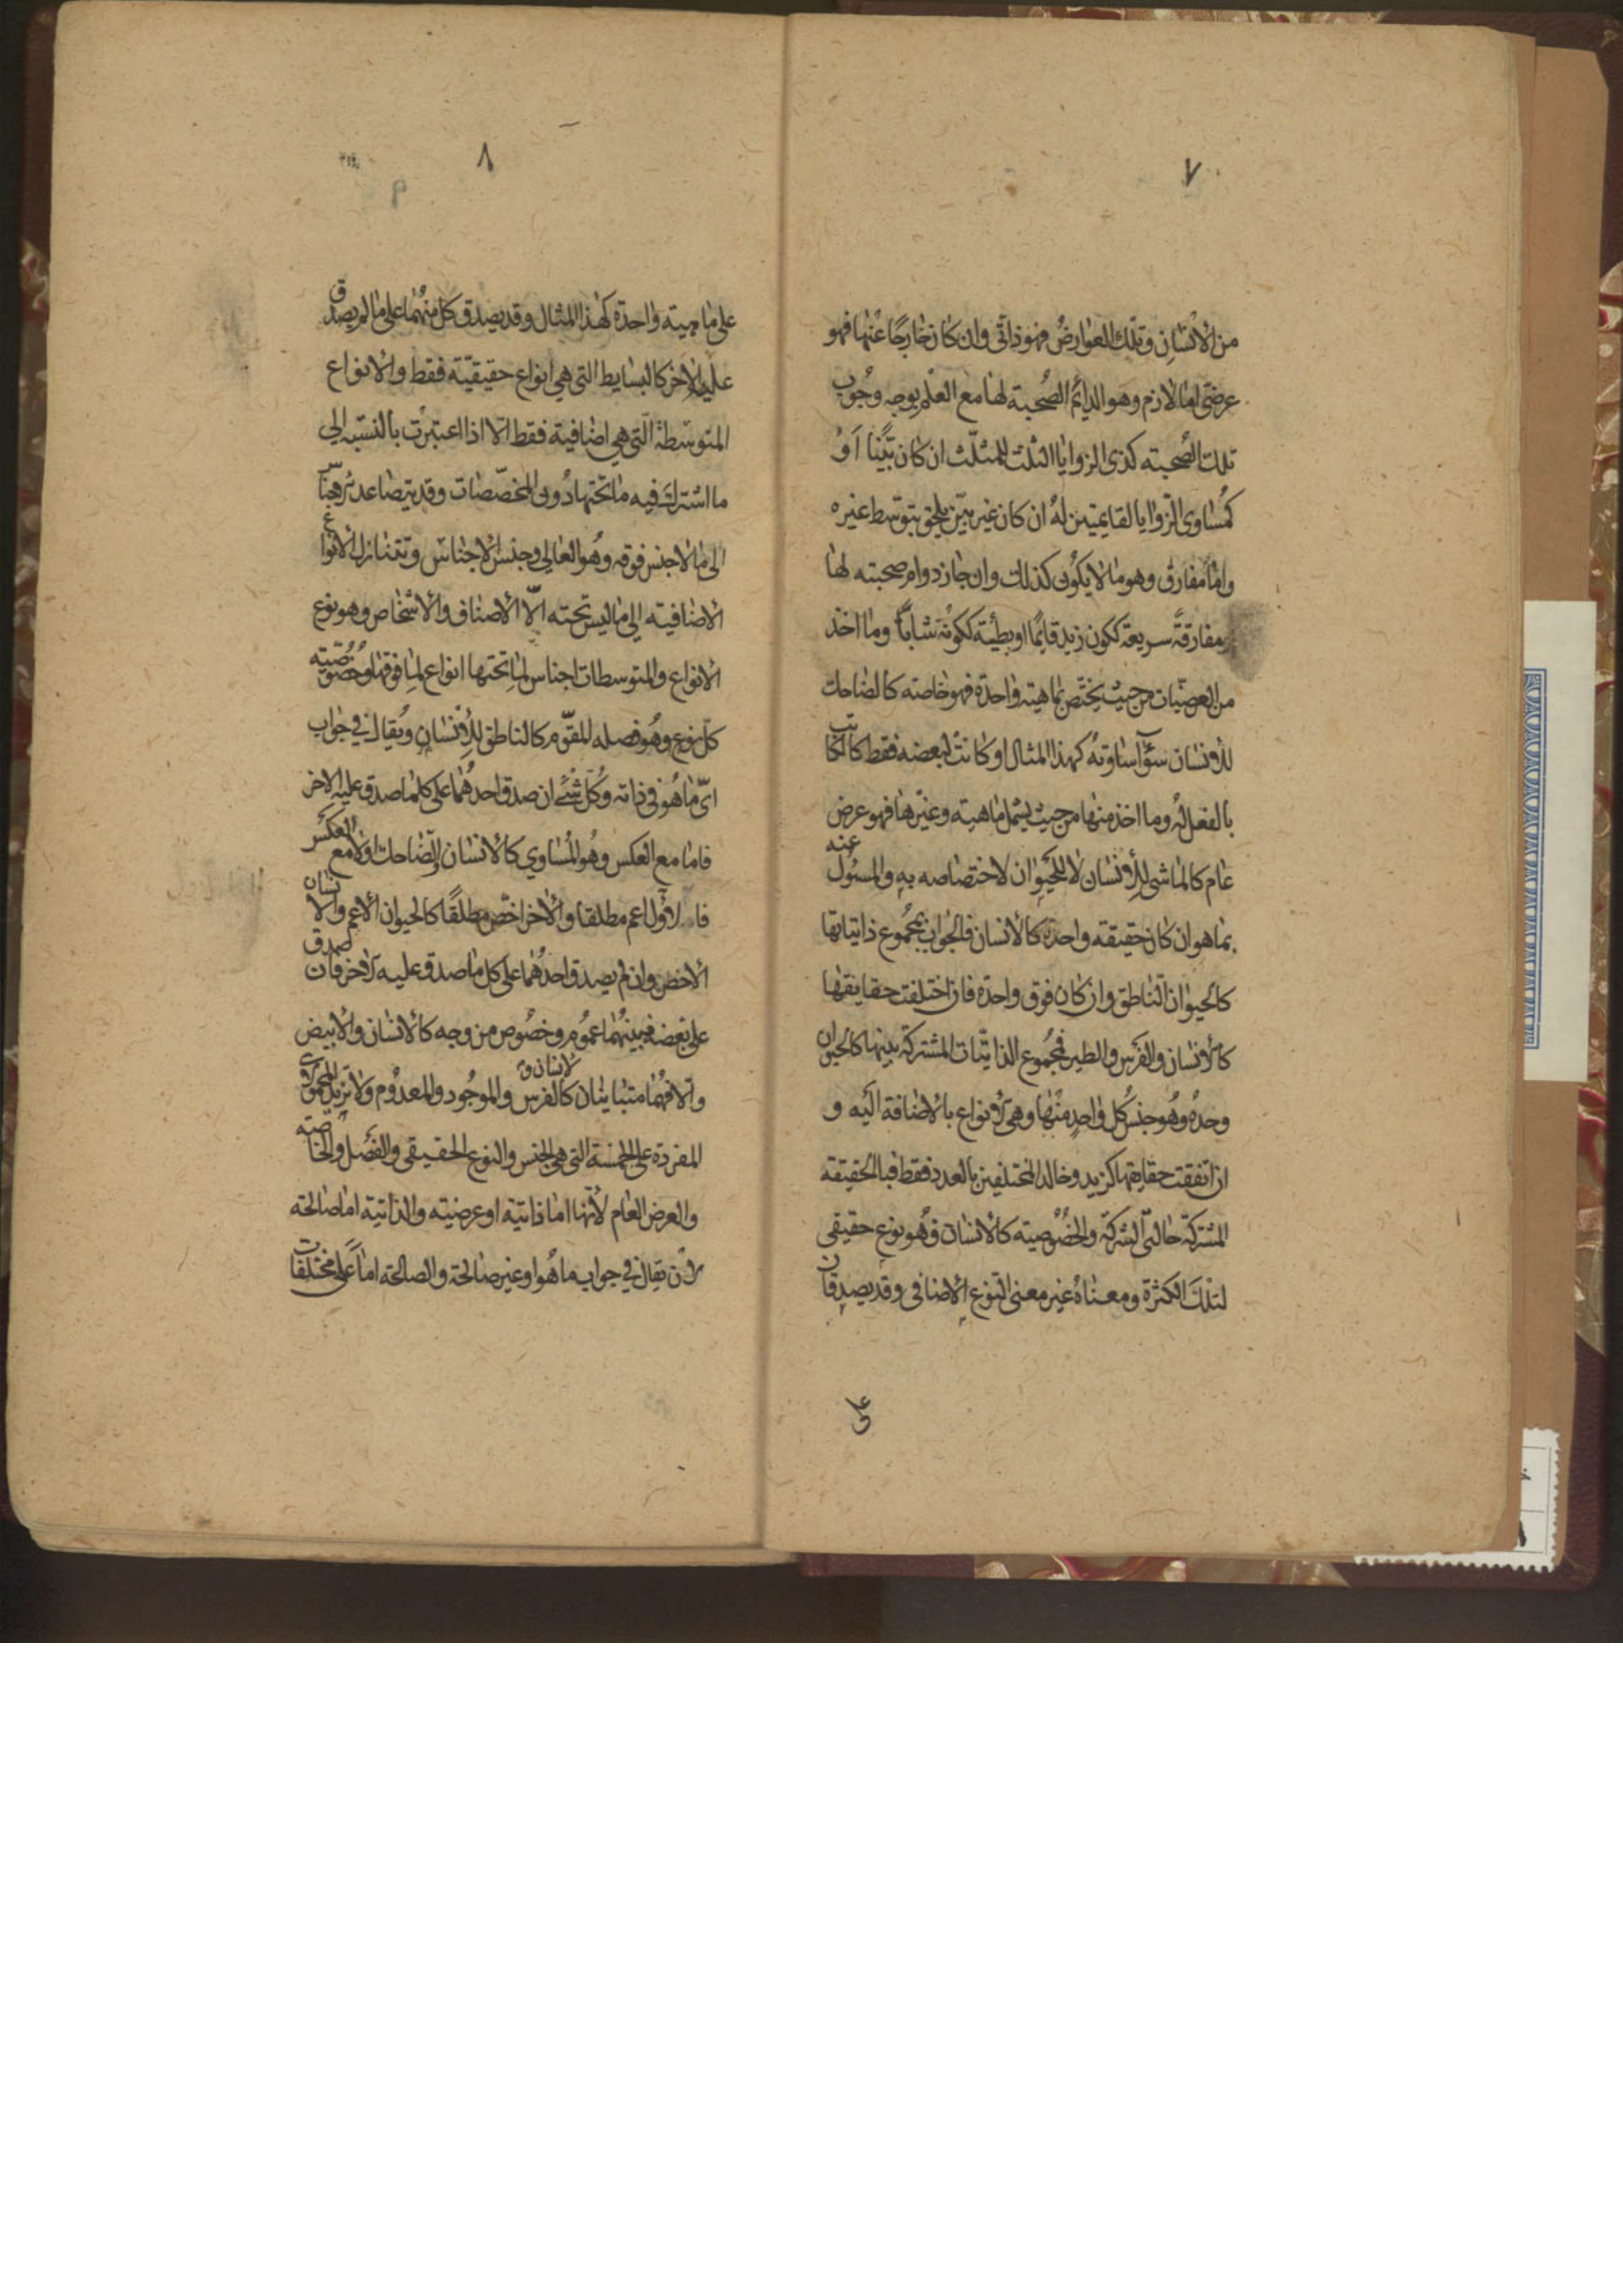 ٧
من الانسان وتلك العوارض فهو ذاتي وان كان خارجا عنها فهو
عرضي اما لازم وهو الدائم الصحبته لها مع العلم بوجه وجوب
تلك الصحبته كذى الزوايا الثلث للمثلث ان كان بينا او
كمساوى الزوايا لقايمتين له ان كان غير بين يلحق بتوسط غيره
واما مفارق وهو ما لا يكون كذلك وان جاز دوام صحبته لها
مفارقة سريعة ككون زيد قايما او بطيئة ككونه شابا وما اخذ
من العرضيات من حيث يختص بماهيته واحدة فهو خاصته كالضاحك
للانسان سواء ساوته كهذا المثال او كانت لبعضه فقط كالكاتب
بالفعل له وما اخذ منها من حيث يشمل ماهيته وغيرها فهو عرض
عام كالماشى للانسان لا للحيوان لاختصاصه به والمسئول عنه
بما هو ان كان حقيقته واحدة كالانسان فالجواب بمجموع ذاتياتها
كالحيوان الناطق وان كان فوق واحدة فان اختلفت حقايقها
كالانسان والفرس والطير فمجموع الذاتيات المشتركة بينها كالحيوان
وحده وهو جنس كل واحد منها وهى الانواع بالاضافة اليه و
ان اتفقت حقايقها كزيد وخالد المختلفين بالعدد فقط فبالحقيقته
المشتركة حالتى الشركة والخصوصيته كالانسان وهو نوع حقيقى
لتلك الكثرة ومعناه غير معنى النوع الاضافى وقد يصدقان
على
٨
على ماهيته واحدة كهذا المثال وقد يصدق كل منهما على ما لم يصدق
عليه الاخر كالبسايط التى هي انواع حقيقيّة فقط والانواع
المتوسّطة التى هي اضافية فقط الّا اذا اعتبرت بالنسبه الى
ما اشترك فيه ما تحتها دون المخصّصات وقد يتصاعد
الى ما لا جنس فوقه وهو العالي وجنس الاجناس وتتنازل الانواع
الاضافيته الى ما ليس تحته الّا الاصناف والاشخاص وهو نوع
الانواع والمتوسطات اجناس لما تحتها انواع لما فوقها وخصوصيته
كل نوع وهو فصله المقوّم كالناطق للانسان ويقال في جواب
اىّ ما هو في ذاته وكل شئ ان صدق احدهما على كلما صدق عليه الاخر
فاما مع العكس وهو المساوي كالانسان والضاحك او لا مع العكس
فالاول اعم مطلقا والاخر اخص مطلقا كالحيوان الاعم والانسان
الاخص وان لم يصدق احدهما على كل ما صدق عليه الاخر فان صدق
على بعضه فبينهما عموم وخصوص من وجه كالانسان والابيض
والا فهما متباينان كالفرس والانسان والموجود والمعدوم ولا تزيد
المفردة على الخمسة التى هى الجنس والنوع الحقيقى والفصل والخاصته
والعرض العام لانها اما ذاتية او عرضيته والذاتية اما صالحته
لان يقال في جواب ما هو او غير صالحة والصالحة اما على مختلفات